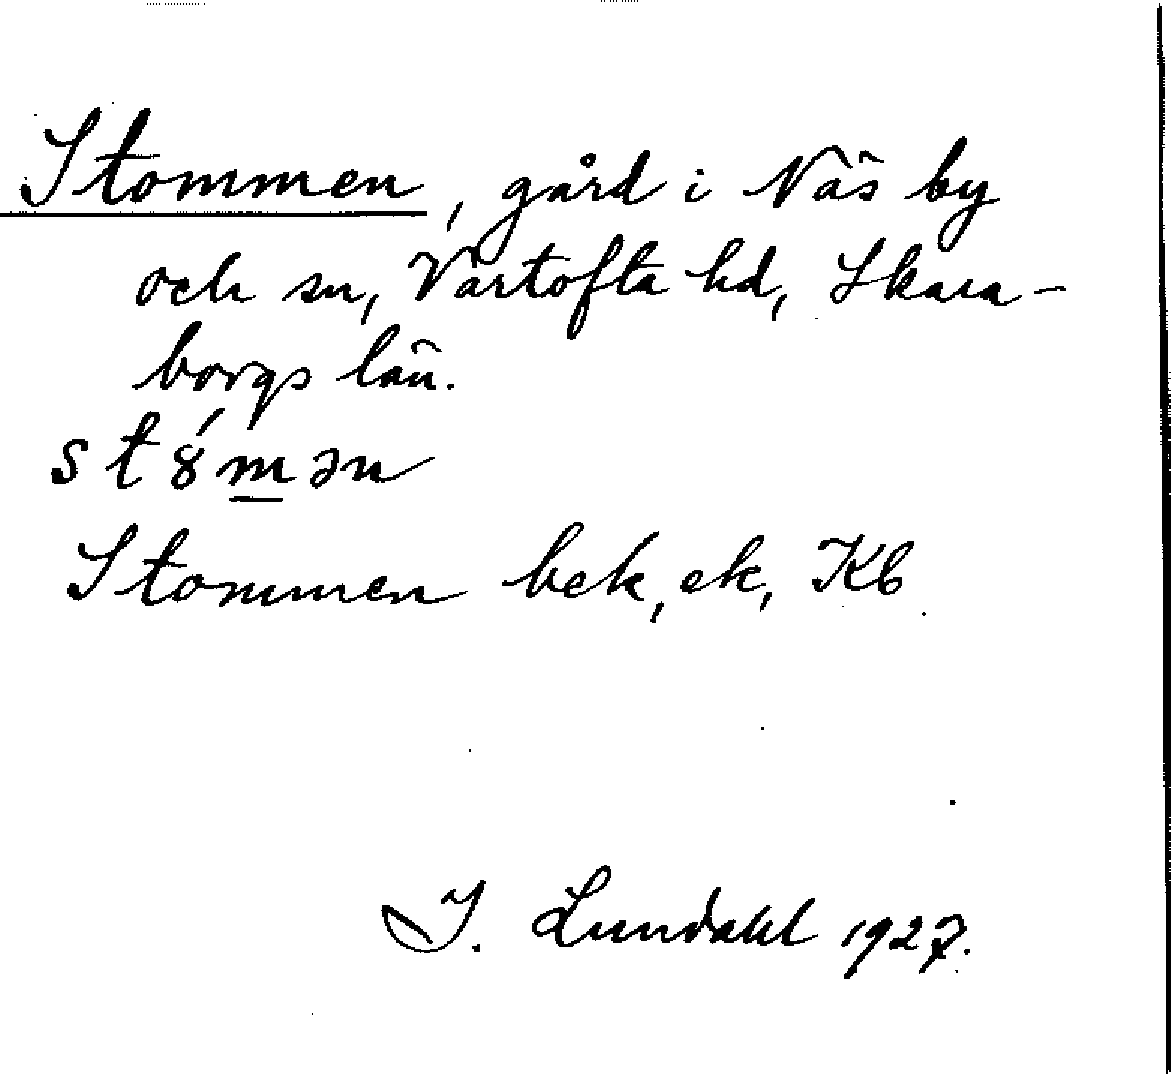 Stommen, gård i Näs by
och sn, Vartofta hd, Skara-
borgs län.
st8́m̲ən
Stommen bek, ek, Kb
I. Lundahl 1927.